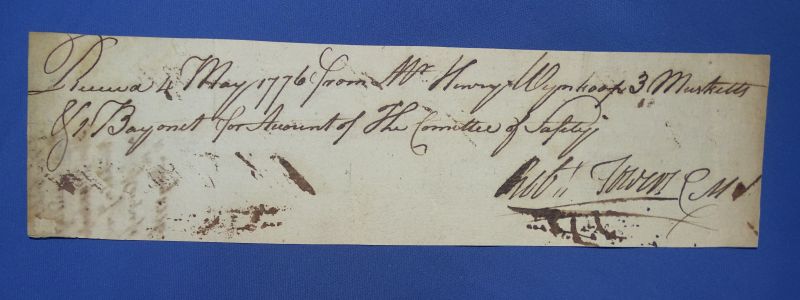 Received 4 May 1776 from Mr Henry Wynkoop 3 Musketts
& 1 Bayonet for Account of The Comittee of Safety
Robt Towers CM